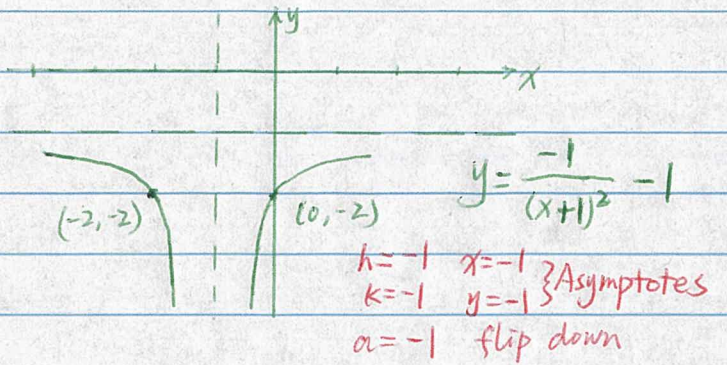 y
x
y = \frac{-1}{(x+1)^2} - 1
(-2,-2)
(0,-2)
h=-1 x=-1
k=-1 y=-1
}Asymptotes
a=-1 flip down